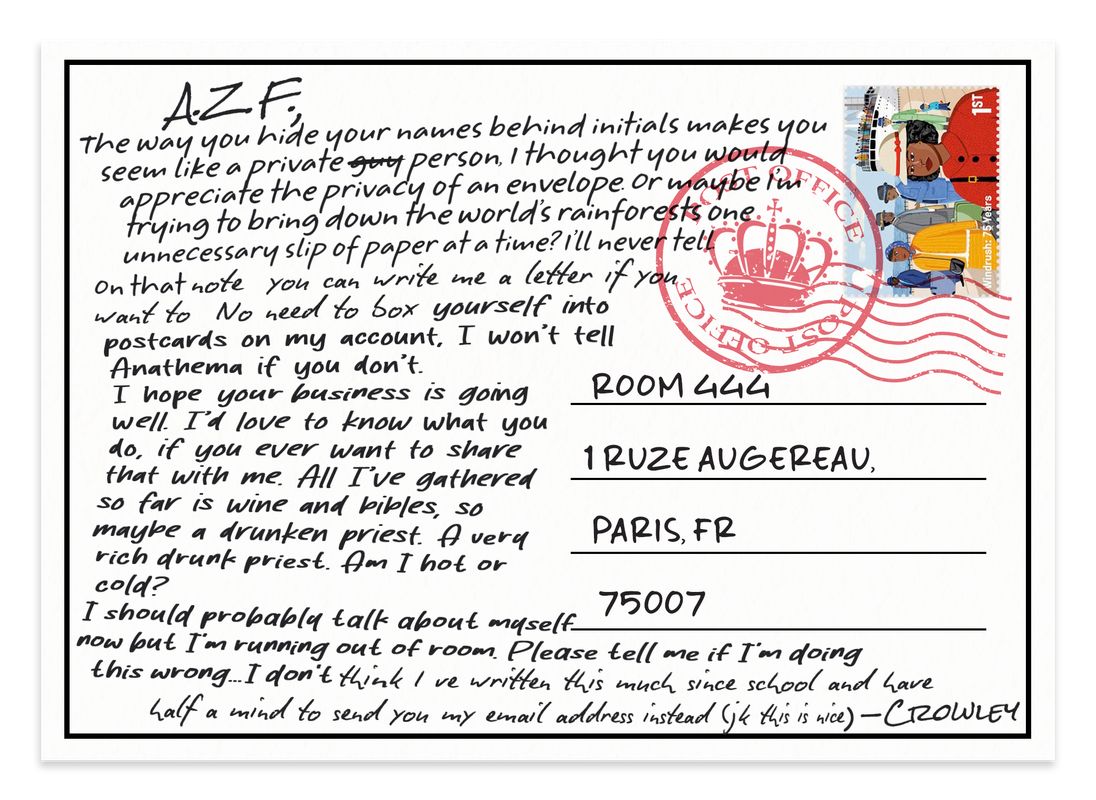 A.Z.F.,
The way you hide your names behind initials makes you
seem like a private guy person, I thought you would
appreciate the privacy of an envelope. Or maybe i'm
trying to bring down the world's rainforests one
unnecessary slip of paper at a time? I'll never tell.
on that note you can write me a letter if you
want to No need to box yourself into
postcards on my account, I won't tell
Anathema if you don't.
I hope your business is going
well. I'd love to know what you
do, if you ever want to share
that with me. All I've gathered
so far is wine and bibles, so
maybe a drunken priest. A very
rich drunk priest. Am I hot or
cold?
I should probably talk about myself
now but I'm running out of room. Please tell me if I'm doing
this wrong...I don't think I ve written this much since school and have
half a mind to send you my email address instead (jk this is nice) —CROWLEY
1ST
Windrush: 75 Years
POST OFFICE
POST OFFICE
ROOM 444
1 RUZE AUGEREAU,
PARIS, FR
75007